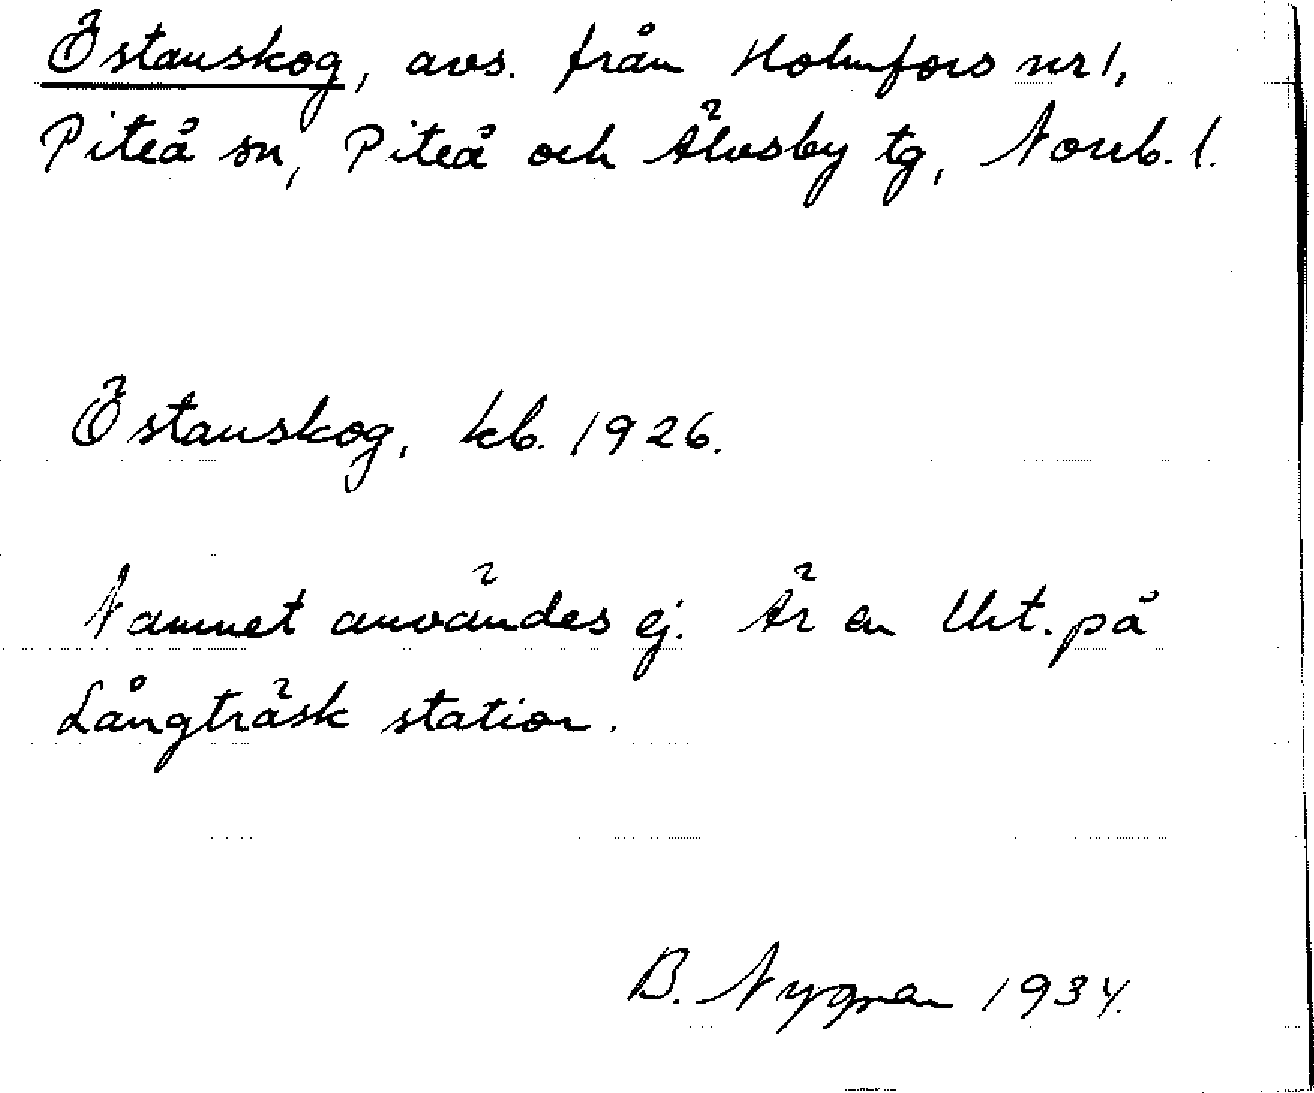 Östanskog, avs. från Holmfors nr 1,
Piteå sn, Piteå och Älvsby tg, Norrb. l.
Östanskog, kb. 1926.
Namnet användes ej. Är en lht. på
Långträsk station.
B. Nygren 1934.